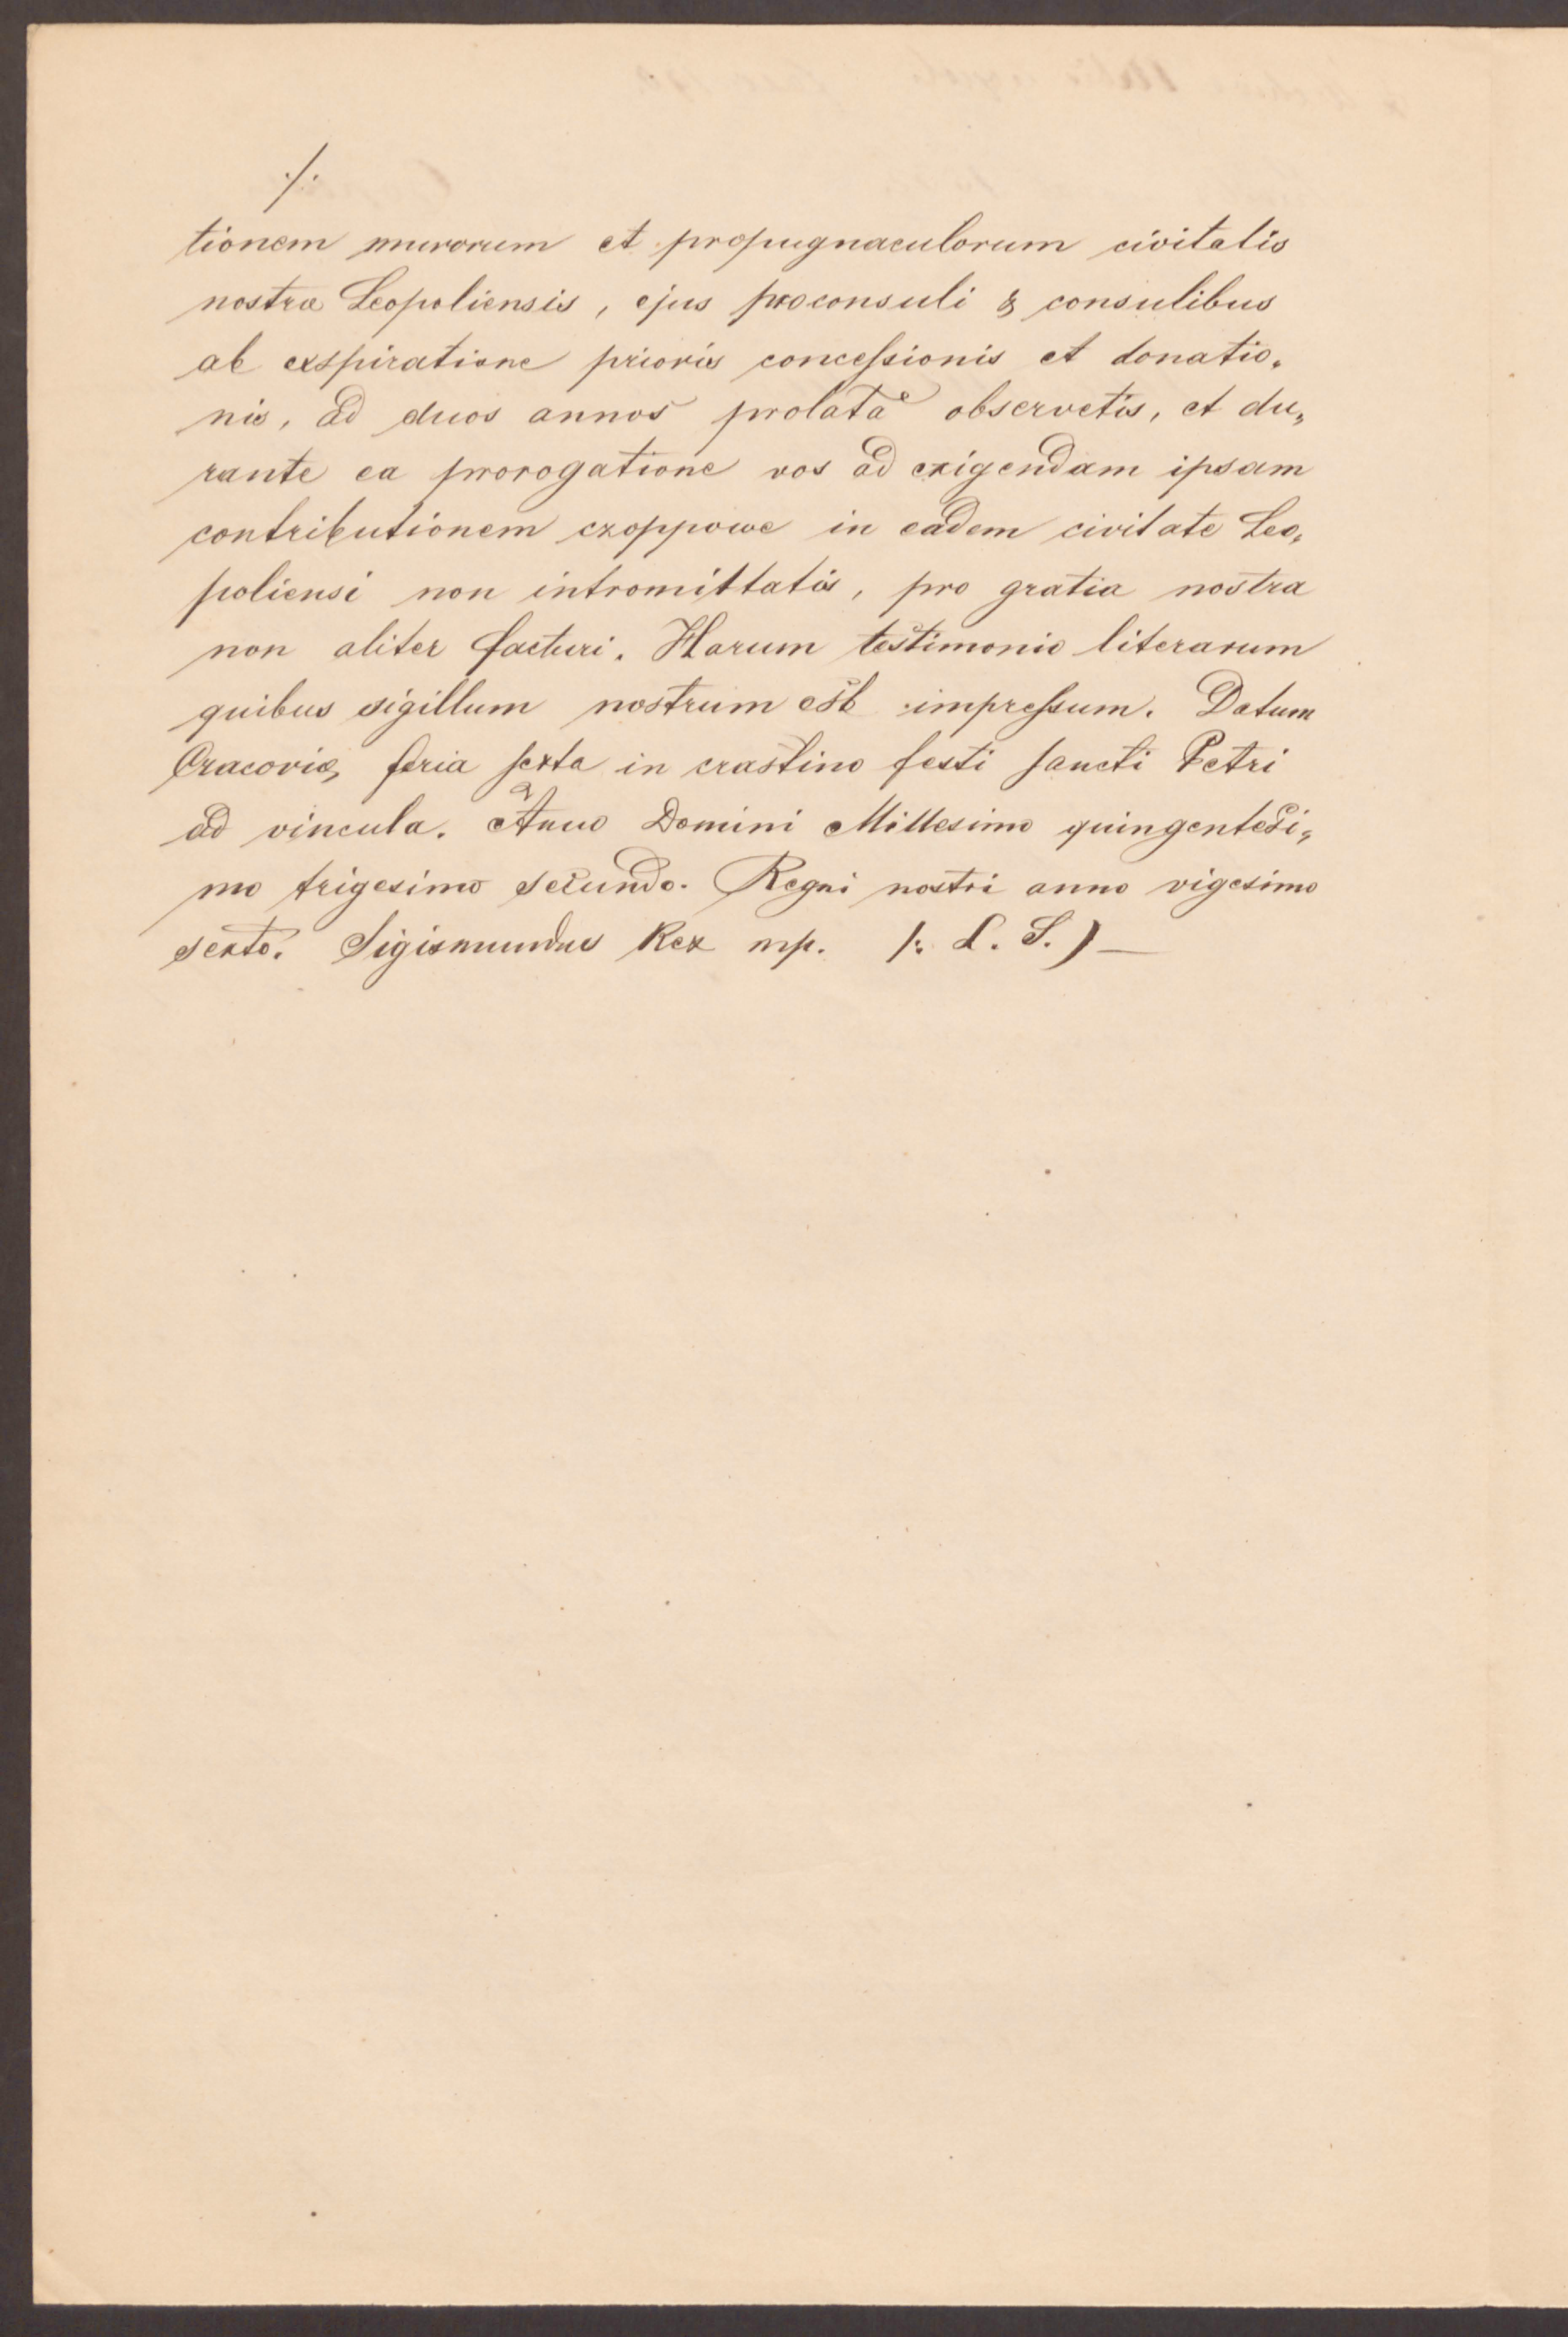 ./.
tionem murorum et propugnaculorum civitatis
nostræ Leopoliensis, ejus proconsuli & consulibus
ab exspiratione prioris concessionis et donatio„
nis, ad duos annos prolatæ observetis, et du„
rante ea prorogatione vos ad exigendam ipsam
contributionem czoppowe in eadem civitate Leo„
poliensi non intromittatis, pro gratia nostra
non aliter facturi. Harum testimonio literarum
quibus sigillum nostrum est impressum. Datum
Cracoviæ, feria sexta in crastino festi sancti Petri
ad vincula. Anno Domini Millesimo quingentesi„
mo trigesimo secundo. Regni nostri anno vigesimo
sexto. Sigismundus Rex mp. /: L. S. ) —